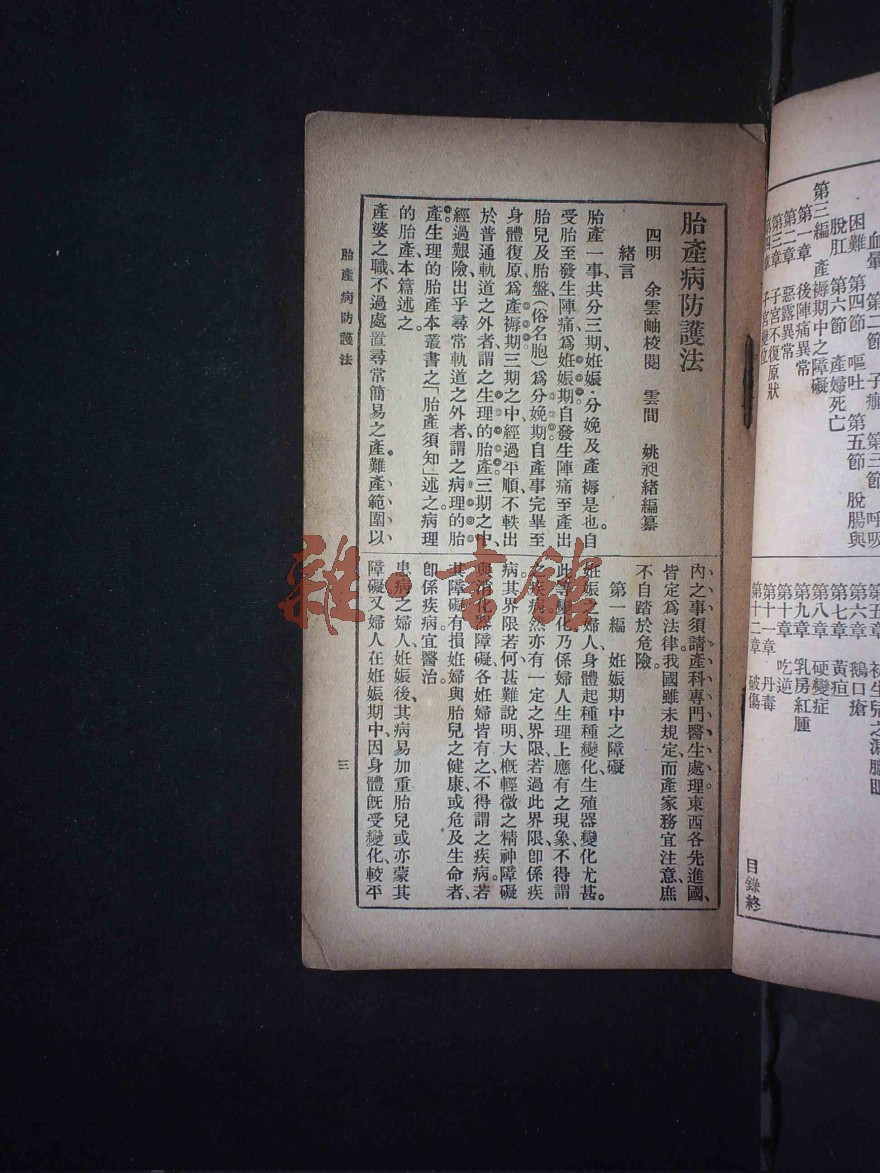 困難　第四節　嘔吐　第五節　脫腸與
脫肛　第六節　產婦死亡
第三編　產褥期中之障礙
第一章　後陣痛異常
第二章　惡露異常
第三章　子宮不復原狀
第四章　子宮變位
第六章　鵝口瘡
第七章　黃疸
第八章　硬變症
第九章　乳房紅腫
第十章　吃逆
第十一章　丹毒
第十二章　破傷
目錄終
胎產病防護法
四明　余雲岫校閱　雲間　姚昶緒編纂
緒言
胎產一事、共分三期、妊娠・分娩及產褥是也。自
受胎至發生陣痛、爲妊娠期。自發生陣痛至產出
胎兒及胎盤（俗名胞）爲分娩期。自產事完畢至
身體復原、爲產褥期。三期之中、經過平順、不軼出
於普通軌道之外者、謂之生理的胎產。三期之中、
經過艱險、出乎尋常軌道之外者、謂之病理的胎
產。生理的胎產、本叢書之「胎產須知」述之。病理
的胎產、本篇述之。
產婆之職、不過處置尋常簡易之產。難產範圍以
內之事、須請產科專門醫生處理。東西各先進國、
皆定爲法律。我國雖未規定、而產家務宜注意、庶
不自踏於危險。
第一編　妊娠期中之障礙
妊娠之婦人、身體起種種變化、生殖器變化尤甚。
此等變化、乃係婦人生理上應有之現象、不得謂
之疾病。然亦有一定之界限、若過此界限、卽係疾
病。其界限若何、甚難說明。大概輕微之精神障礙
與消化器障礙、各妊婦皆有之、不得謂之疾病。若
其障礙有損妊婦與胎兒之健康、或危及生命者、
卽係疾病、宜醫治。
患病之婦人、妊娠後、其病易加重、胎兒或亦蒙其
障礙。又婦人在妊娠期中、因身體旣受變化、較平
胎產病防護法
三
雜·書館